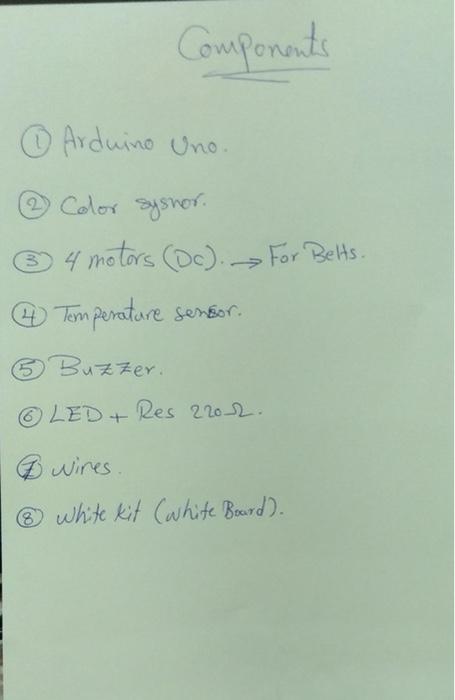 Components
① Arduino Uno.
② Color sysnor.
③ 4 motors (DC). → For Belts.
④ Temperature sensor.
⑤ Buzzer.
⑥ LED + Res 220Ω.
⑦ wires.
⑧ White kit (white Board).